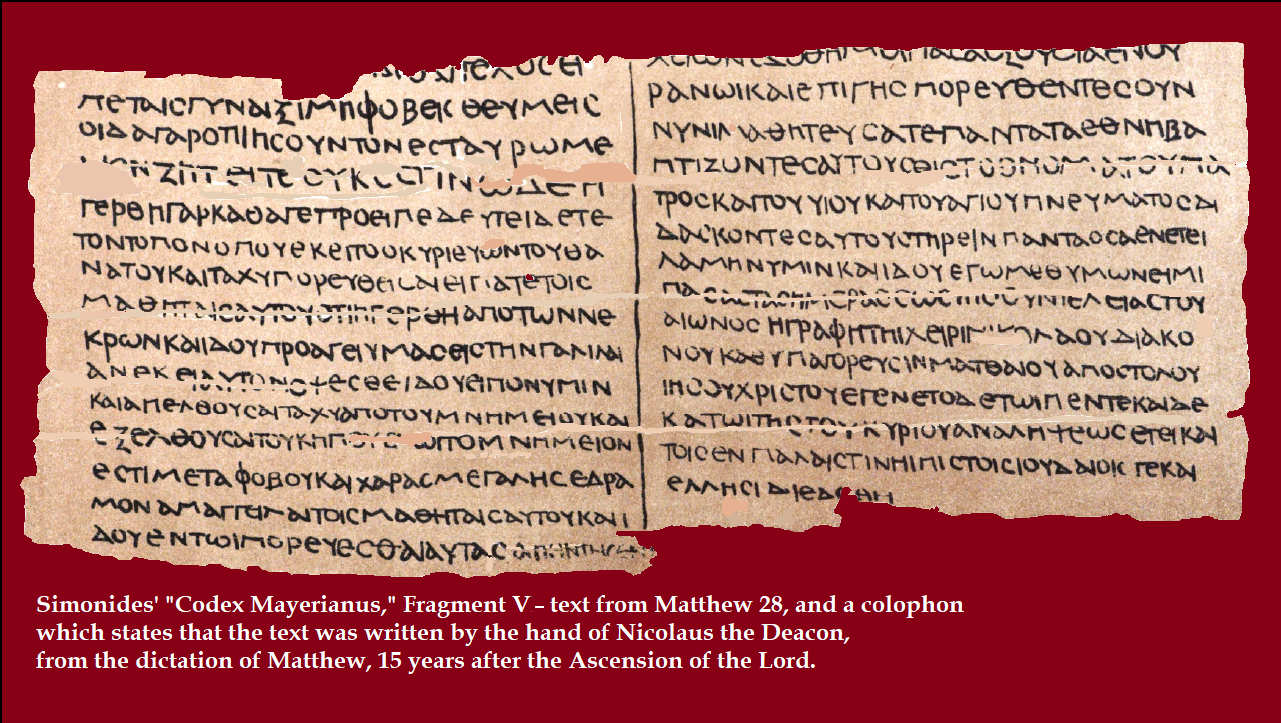 ΠΕΤΑΙϹΓΥΝΑΙΞΙΜΗΦΟΒΕΙϹΘΕΥΜΕΙϹ
ΟΙΔΑΓΑΡΟΤΙΙΗϹΟΥΝΤΟΝΕϹΤΑΥΡΩΜΕ
ΝΟΝΖΗΤΕΙΤΕΟΥΚΕϹΤΙΝΩΔΕΗ
ΓΕΡΘΗΓΑΡΚΑΘΑΓΕΠΡΟΕΙΠΕΔΕΥΤΕΙΔΕΤΕ
ΤΟΝΤΟΠΟΝΟΠΟΥΕΚΕΙΤΟΟΚΥΡΙΕΥΩΝΤΟΥΘΑ
ΝΑΤΟΥΚΑΙΤΑΧΥΠΟΡΕΥΘΕΙϹΑΙΕΙΠΑΤΕΤΟΙϹ
ΜΑΘΗΤΑΙϹΑΥΤΟΥΟΤΙΗΓΕΡΘΗΑΠΟΤΩΝΝΕ
ΚΡΩΝΚΑΙΙΔΟΥΠΡΟΑΓΕΙΥΜΑϹΕΙϹΤΗΝΓΑΛΙΛΑΙ
ΑΝΕΚΕΙΑΥΤΟΝΟΨΕϹΘΕΙΔΟΥΕΙΠΟΝΥΜΙΝ
ΚΑΙΑΠΕΛΘΟΥϹΑΙΤΑΧΥΑΠΟΤΟΥΜΝΗΜΕΙΟΥΚΑΙ
ΕΞΕΛΘΟΥϹΑΙΤΟΥΚΗΠΟΥΕΝΩΙΤΟΜΝΗΜΕΙΟΝ
ΕϹΤΙΜΕΤΑΦΟΒΟΥΚΑΙΧΑΡΑϹΜΕΓΑΛΗϹΕΔΡΑ
ΜΟΝΑΠΑΓΓΕΙΛΑΙΤΟΙϹΜΑΘΗΤΑΙϹΑΥΤΟΥΚΑΙΙ
ΔΟΥΕΝΤΩΙΠΟΡΕΥΕϹΘΑΙΑΥΤΑϹ
ΡΑΝΩΙΚΑΙΕΠΙΓΗϹΠΟΡΕΥΘΕΝΤΕϹΟΥΝ
ΝΥΝΙΜΑΘΗΤΕΥϹΑΤΕΠΑΝΤΑΤΑΕΘΝΗΒΑ
ΠΤΙΖΟΝΤΕϹΑΥΤΟΥϹΕΙϹΤΟΟΝΟΜΑΤΟΥΠΑ
ΤΡΟϹΚΑΙΤΟΥΥΙΟΥΚΑΙΤΟΥΑΓΙΟΥΠΝΕΥΜΑΤΟϹΔΙ
ΔΑϹΚΟΝΤΕϹΑΥΤΟΥϹΤΗΡΕΙΝΠΑΝΤΑΟϹΑΕΝΕΤΕΙ
ΛΑΜΗΝΥΜΙΝΚΑΙΙΔΟΥΕΓΩΜΕΘΥΜΩΝΕΙΜΙ
ΠΑϹΑϹΤΑϹΗΜΕΡΑϹΕΩϹΤΗϹϹΥΝΤΕΛΕΙΑϹΤΟΥ
ΑΙΩΝΟϹΗΓΡΑΦΗΤΗΙΧΕΙΡΙΝΙΚΟΛΑΟΥΔΙΑΚΟ
ΝΟΥΚΑΘΥΠΑΓΟΡΕΥϹΙΝΜΑΤΘΑΙΟΥΑΠΟϹΤΟΛΟΥ
ΙΗϹΟΥΧΡΙϹΤΟΥΕΓΕΝΕΤΟΔΕΤΩΙΠΕΝΤΕΚΑΙΔΕ
ΚΑΤΩΙΤΗϹΤΟΥΚΥΡΙΟΥΑΝΑΛΗΨΕΩϹΕΤΕΙΚΑΙ
ΤΟΙϹΕΝΠΑΛΑΙϹΤΙΝΗΙΠΙϹΤΟΙϹΙΟΥΔΑΙΟΙϹΤΕΚΑΙ
ΕΛΛΗϹΙΔΙΕΔΟΘΗ
Simonides' "Codex Mayerianus," Fragment V – text from Matthew 28, and a colophon
which states that the text was written by the hand of Nicolaus the Deacon,
from the dictation of Matthew, 15 years after the Ascension of the Lord.